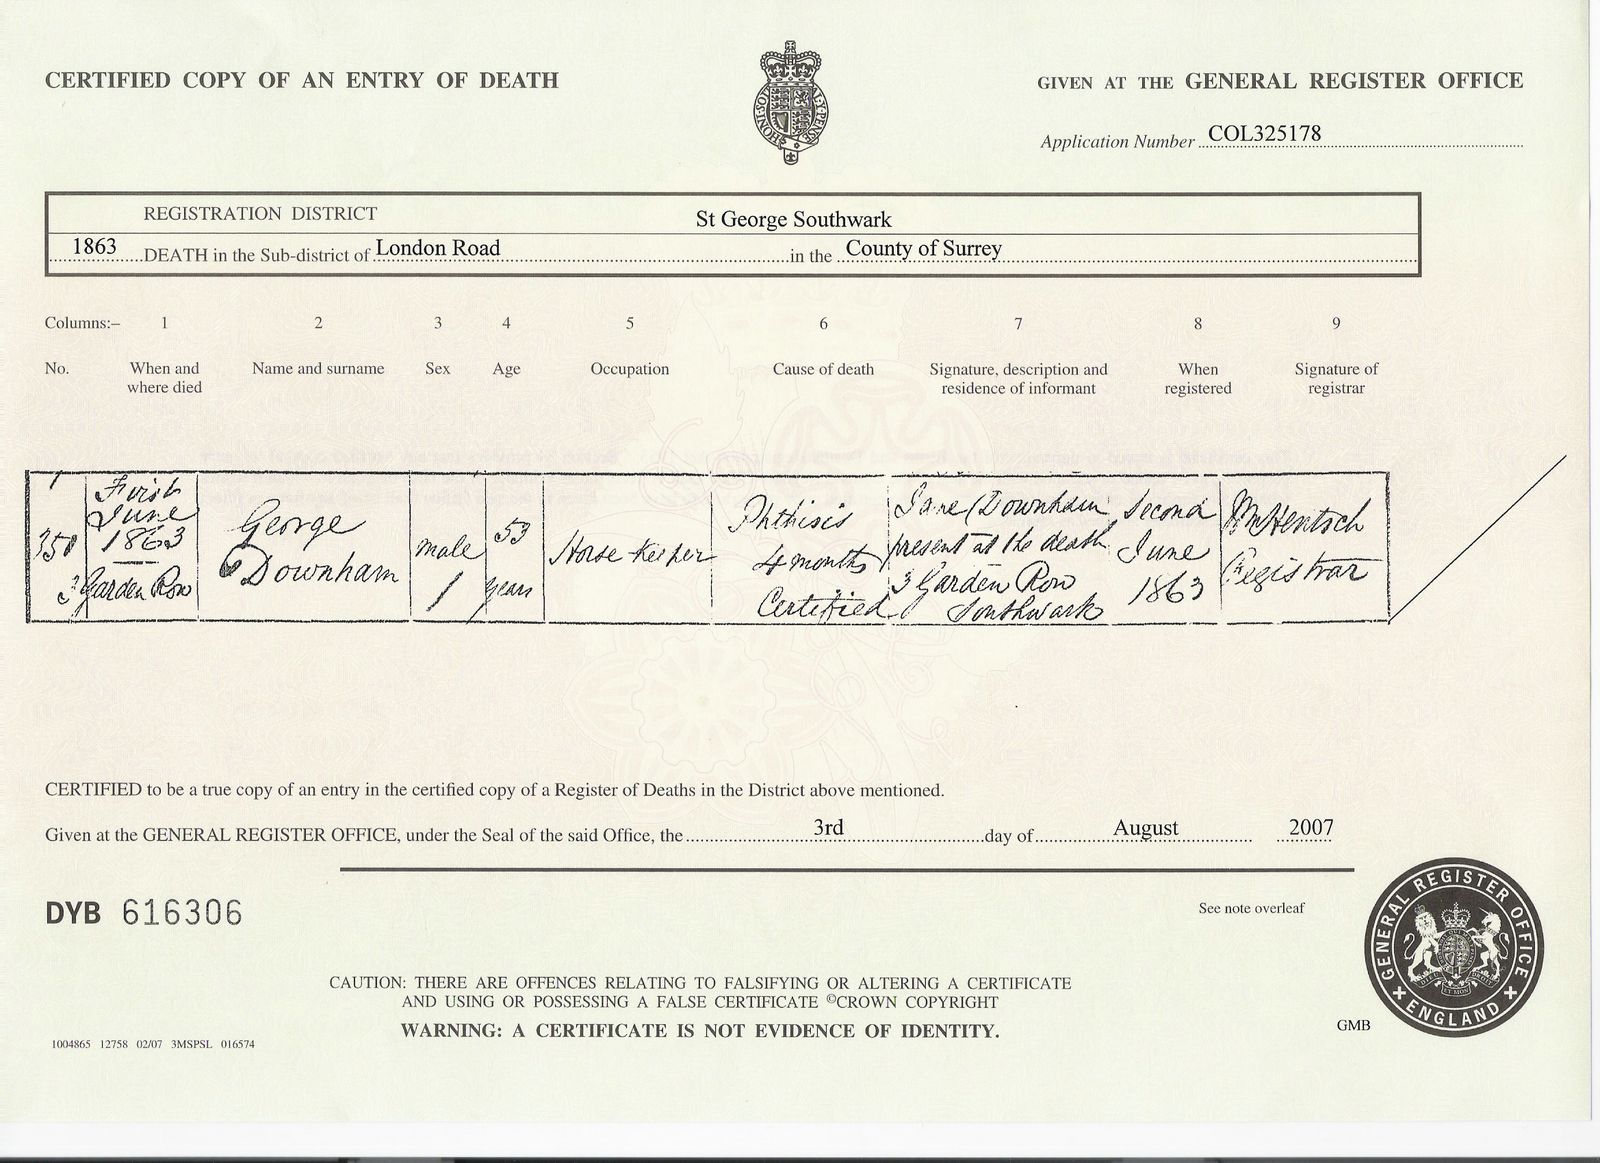 CERTIFIED COPY OF AN ENTRY OF DEATH
HONI SOI
Y PENSE
GIVEN AT THE GENERAL REGISTER OFFICE
Application Number COL325178
REGISTRATION DISTRICT St George Southwark
1863 DEATH in the Sub-district of London Road in the County of Surrey
Columns:– 1 2 3 4 5 6 7 8 9
No. When and where died Name and surname Sex Age Occupation Cause of death Signature, description and residence of informant When registered Signature of registrar
350
First
June
1863
3 Garden Row
George
Downham
male
53
years
Horse Keeper
Phthisis
4 months
Certified
Jane Downham
present at the death
3 Garden Row
Southwark
Second
June
1863
Wm Hentsch
Registrar
CERTIFIED to be a true copy of an entry in the certified copy of a Register of Deaths in the District above mentioned.
Given at the GENERAL REGISTER OFFICE, under the Seal of the said Office, the 3rd day of August 2007
DYB 616306
See note overleaf
GENERAL REGISTER OFFICE
ENGLAND
CAUTION: THERE ARE OFFENCES RELATING TO FALSIFYING OR ALTERING A CERTIFICATE
AND USING OR POSSESSING A FALSE CERTIFICATE ©CROWN COPYRIGHT
WARNING: A CERTIFICATE IS NOT EVIDENCE OF IDENTITY.
GMB
1004865 12758 02/07 3MSPSL 016574